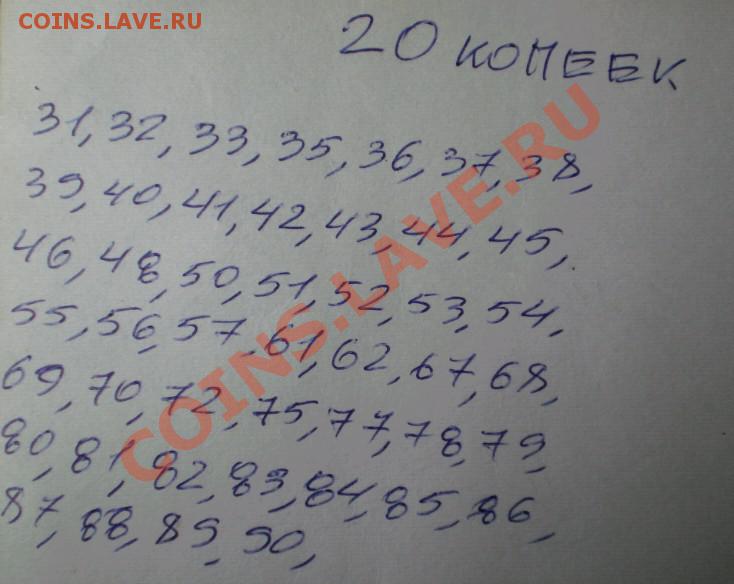 COINS.LAVE.RU
20 КОПЕЕК
31, 32, 33, 35, 36, 37, 38,
39, 40, 41, 42, 43, 44, 45,
46, 48, 50, 51, 52, 53, 54,
55, 56, 57, 61, 62, 67, 68,
69, 70, 72, 75, 77, 78, 79,
80, 81, 82, 83, 84, 85, 86,
87, 88, 89, 90,
COINS.LAVE.RU